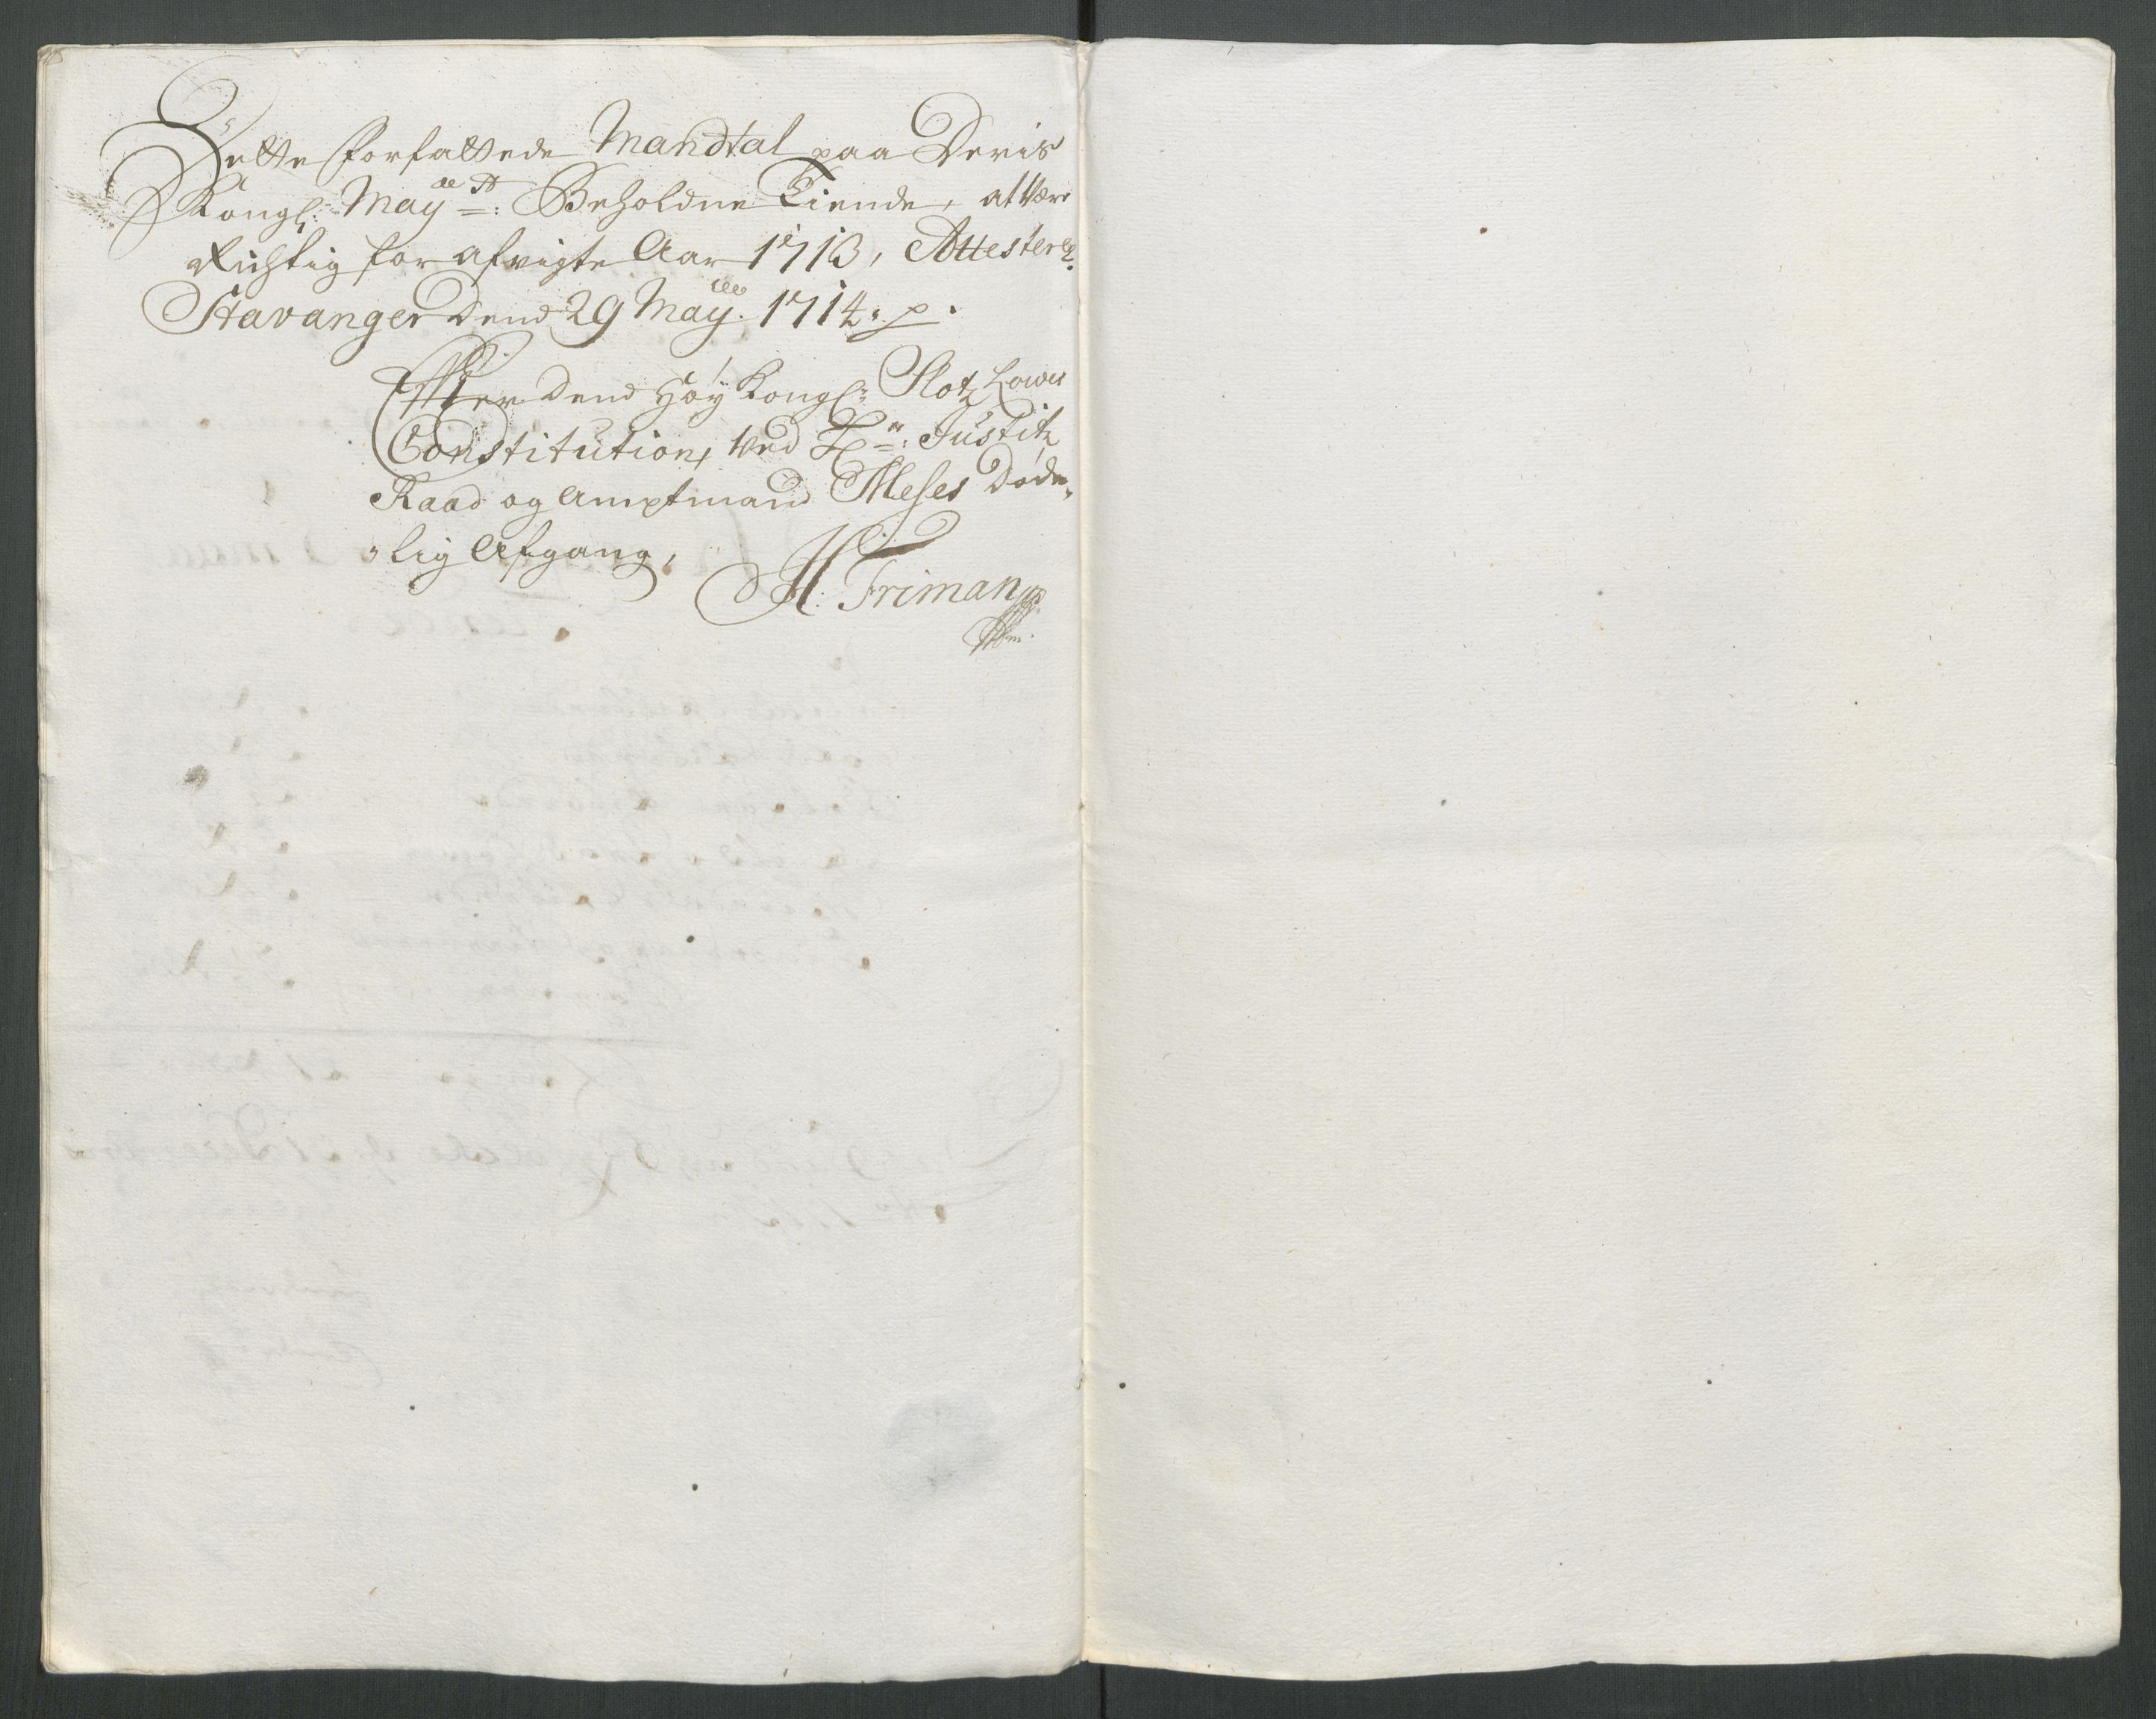 Dette forfattede Mandtal paa Deris
Kongl: May:tt Beholdne Tiende, at være
Richtig for afvigte Aar 1713, Attesterer
Stavanger dend 29 May. 1714. p.
Effter dend Høy Kongl: Slotz Lowes
Constitution, ved Hr: Justitz
Raad og Amptmand Meses Døde„
„lig Afgang,
H: Friman